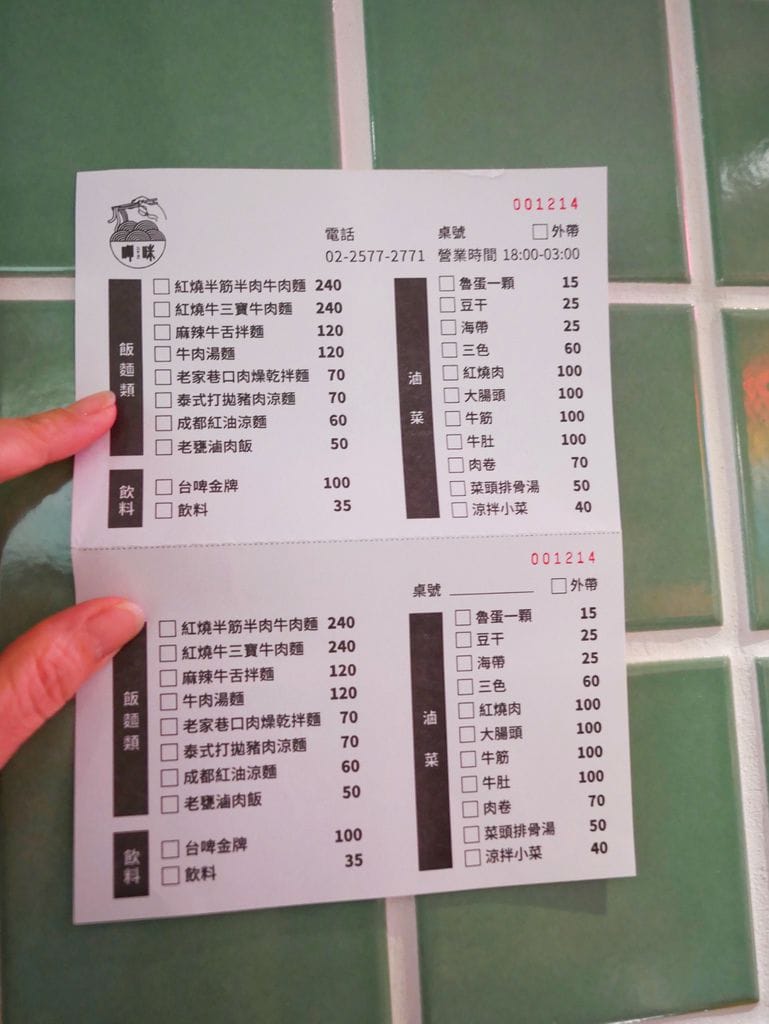 001214
呷咪
電話 桌號 □外帶
02-2577-2771 營業時間 18:00-03:00
飯麵類
□紅燒半筋半肉牛肉麵 240
□紅燒牛三寶牛肉麵 240
□麻辣牛舌拌麵 120
□牛肉湯麵 120
□老家巷口肉燥乾拌麵 70
□泰式打拋豬肉涼麵 70
□成都紅油涼麵 60
□老甕滷肉飯 50
飲料
□台啤金牌 100
□飲料 35
滷菜
□魯蛋一顆 15
□豆干 25
□海帶 25
□三色 60
□紅燒肉 100
□大腸頭 100
□牛筋 100
□牛肚 100
□肉卷 70
□菜頭排骨湯 50
□涼拌小菜 40
001214
桌號 ________ □外帶
飯麵類
□紅燒半筋半肉牛肉麵 240
□紅燒牛三寶牛肉麵 240
□麻辣牛舌拌麵 120
□牛肉湯麵 120
□老家巷口肉燥乾拌麵 70
□泰式打拋豬肉涼麵 70
□成都紅油涼麵 60
□老甕滷肉飯 50
飲料
□台啤金牌 100
□飲料 35
滷菜
□魯蛋一顆 15
□豆干 25
□海帶 25
□三色 60
□紅燒肉 100
□大腸頭 100
□牛筋 100
□牛肚 100
□肉卷 70
□菜頭排骨湯 50
□涼拌小菜 40